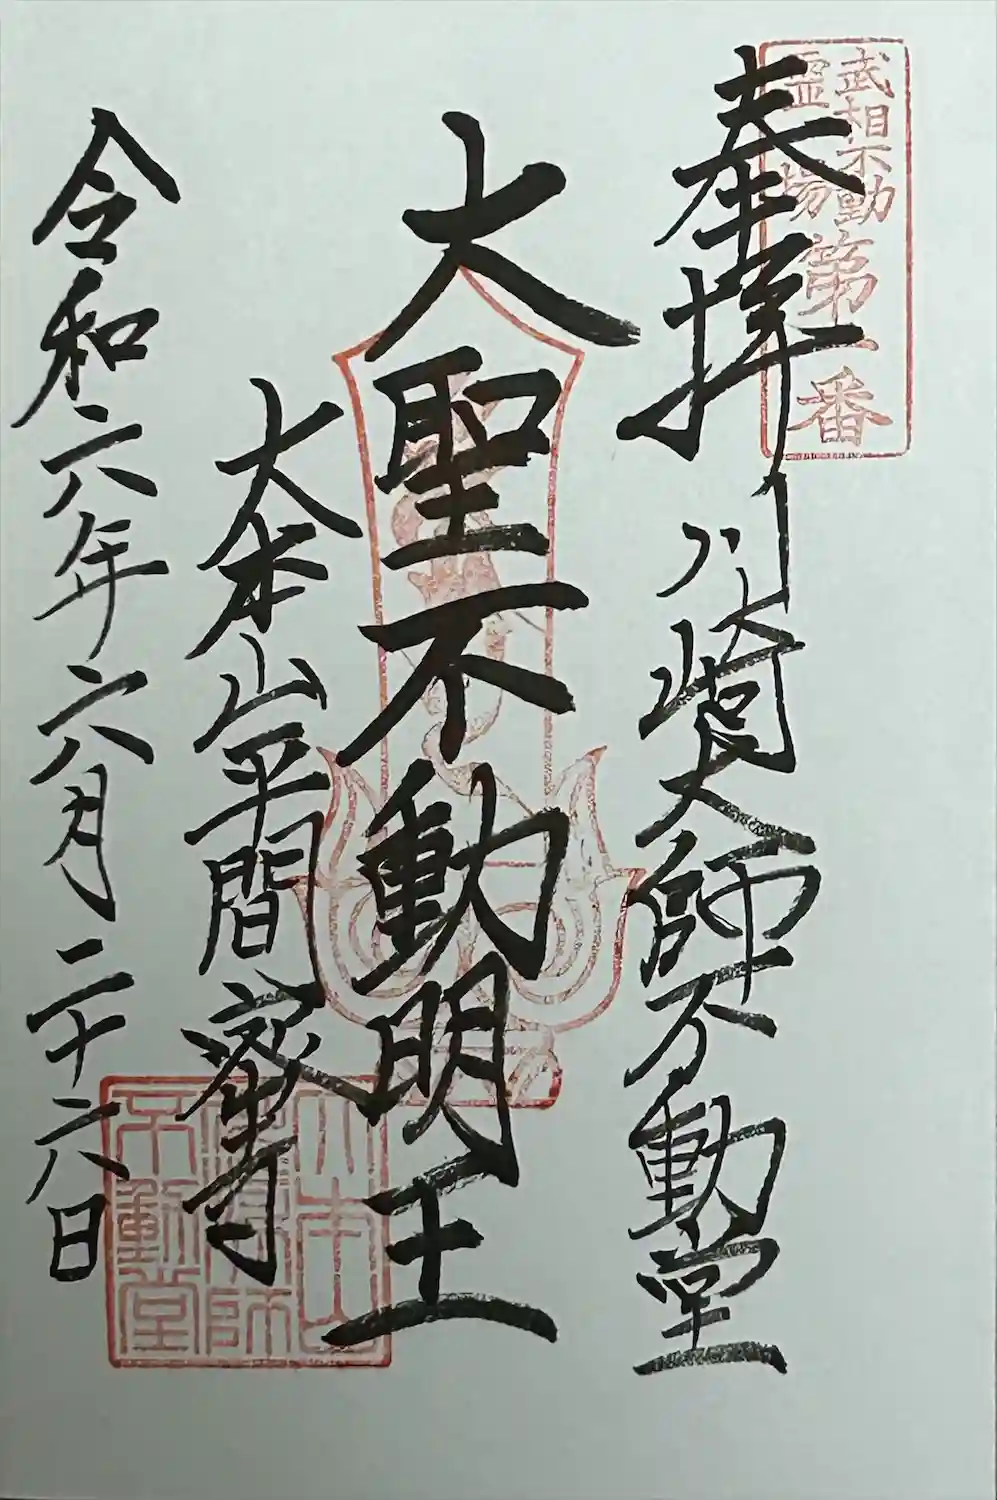 武相不動
霊場
第一番
奉拝
川崎大師不動堂
大聖不動明王
大本山平間密寺
令和六年六月二十六日
大本山
川崎大師
不動堂